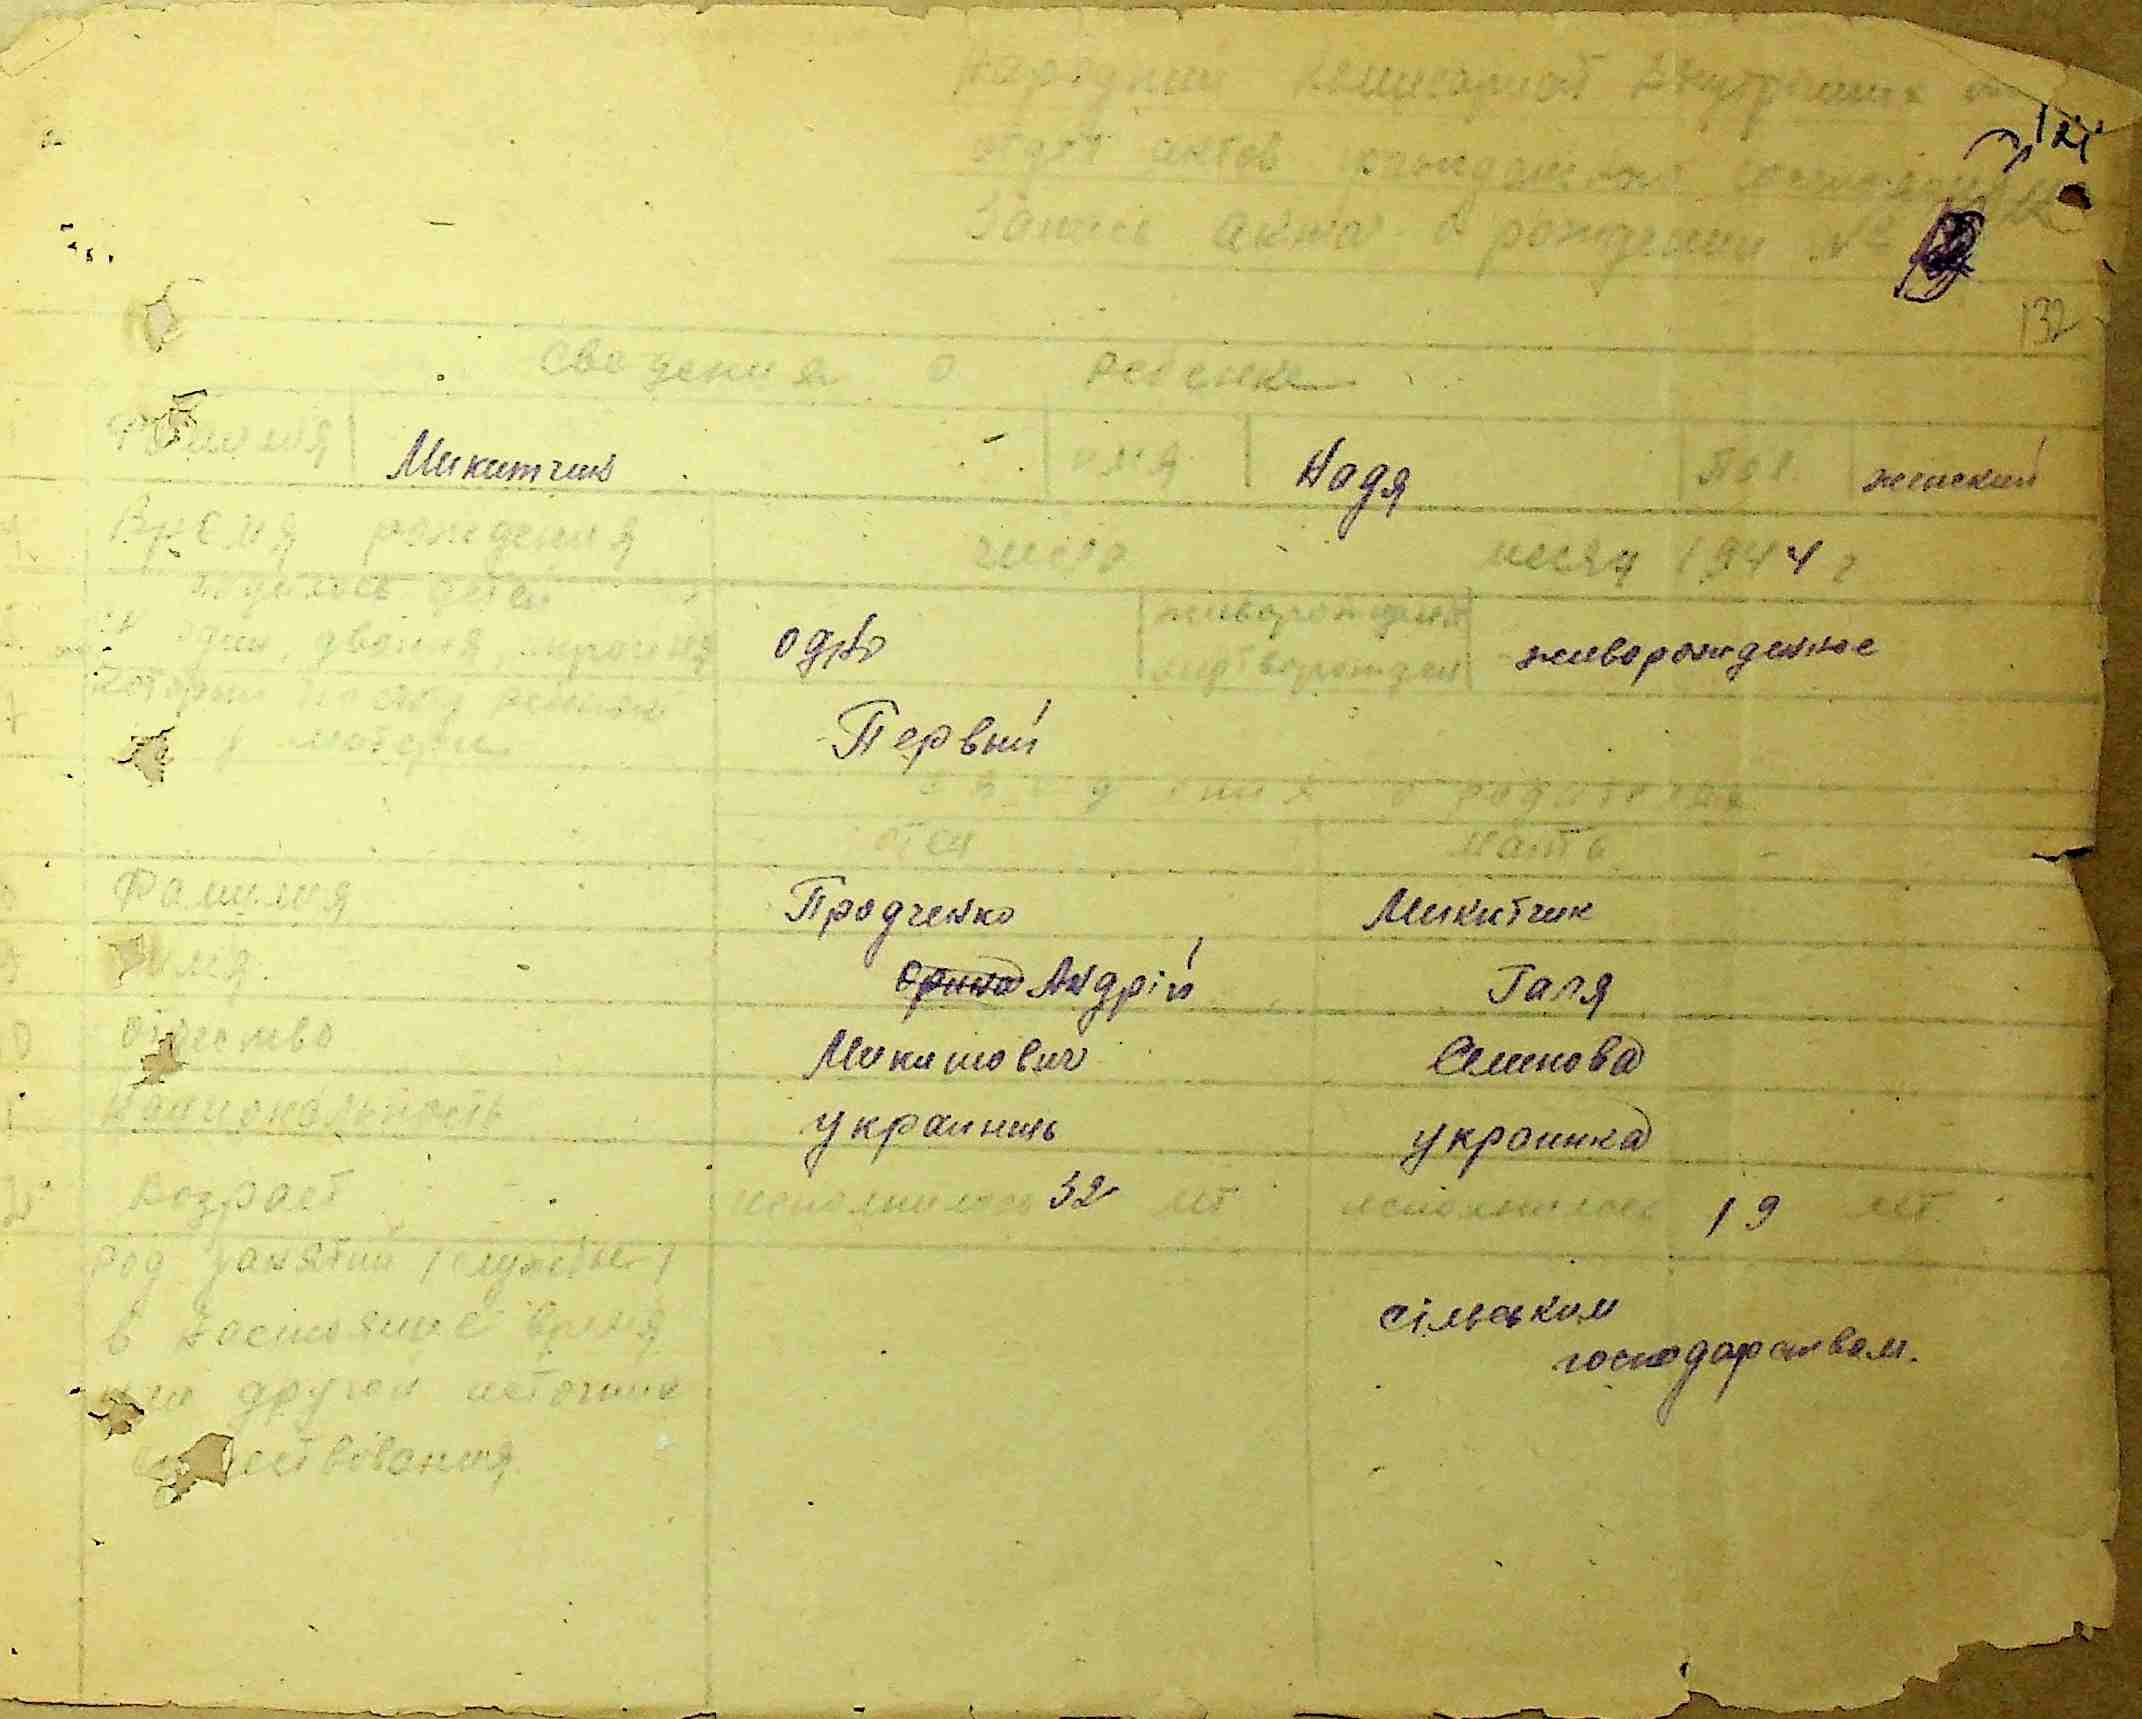 Народний Комисариат Внутренних
отдел актов гражданского состояния
Запись акта о рождении №
132
Сведения о ребенке
Фамилия Микитчик имя Надя пол женский
Время рождения число месяц 1944 г
родилось детей
один, двойня, тройня одно живорожден мертворожден живорожденное
который по счету ребенок
у матери Первый
Сведения о родителях
отец мать
Фамилия Продченко Микитчик
имя Андрій Галя
отчество Микитович Семнова
Национальность украинець украинка
Возраст исполнилось 32 лет исполнилось 19 лет
род занятий /службы/
в настоящее время сільським
или другой источник господарством.
существования